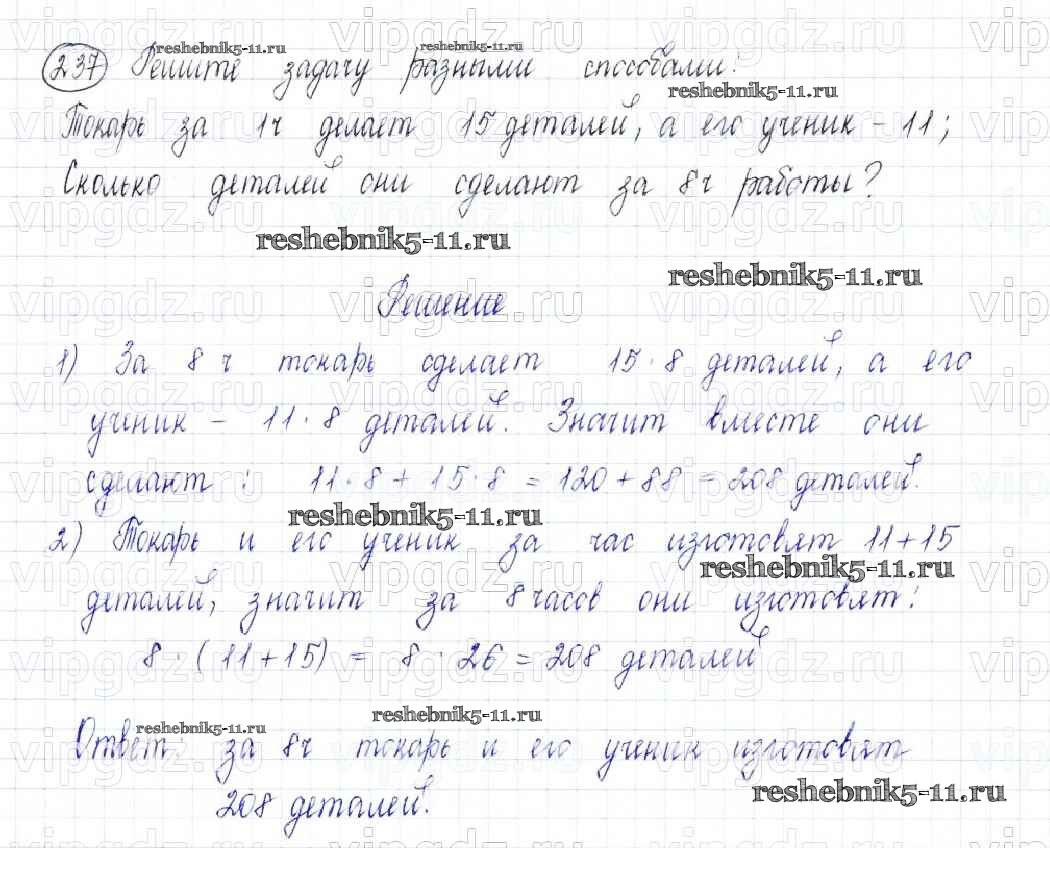 237 Решите задачу разными способами:
Токарь за 1ч делает 15 деталей, а его ученик - 11;
Сколько деталей они сделают за 8ч работы?
Решение
1) За 8 ч токарь сделает 15 · 8 деталей, а его
ученик - 11 · 8 деталей. Значит вместе они
сделают : 11 · 8 + 15 · 8 = 120 + 88 = 208 деталей.
2) Токарь и его ученик за час изготовят 11 + 15
деталей, значит за 8 часов они изготовят:
8 · (11 + 15) = 8 · 26 = 208 деталей
Ответ за 8ч токарь и его ученик изготовят
208 деталей.
reshebnik5-11.ru
reshebnik5-11.ru
reshebnik5-11.ru
reshebnik5-11.ru
reshebnik5-11.ru
reshebnik5-11.ru
reshebnik5-11.ru
reshebnik5-11.ru
reshebnik5-11.ru
reshebnik5-11.ru
vipgdz.ru